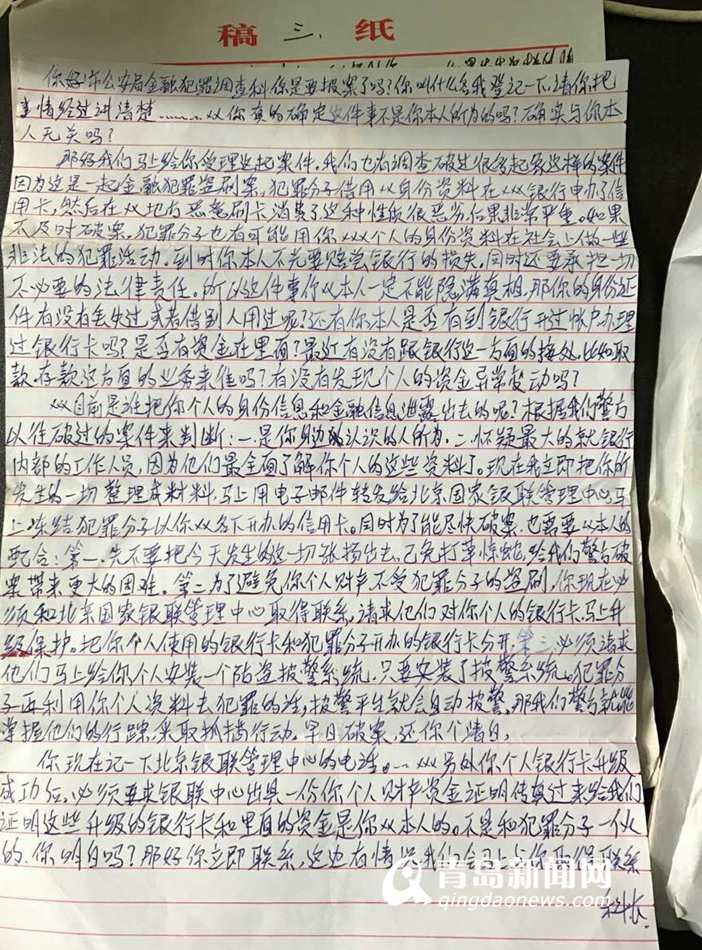 稿 三 纸
你好市公安局金融犯罪调查科你是要报案了吗?你叫什么名我登记一下,请你把
事情经过讲清楚………从你真的确定这件事不是你本人所为的吗?确实与你本
人无关吗?
那好我们马上给你受理这起案件。我们也有调查破过很多起象这样的案件
因为这是一起金融犯罪盗刷案,犯罪分子借用从身份资料在从从银行申办了信
用卡,然后在从地方恶意刷卡消费了这种性质很恶劣,后果非常严重。如果
不及时破案,犯罪分子也有可能用你从从个人的身份资料在社会上做一些
非法的犯罪活动,到时你本人不光要赔尝银行的损失,同时还要承担一切
不必要的法律责任。所以这件事你从本人一定不能隐满真相,那你的身份证
件有没有丢失过或者借别人用过呢?还有你本人是否有到银行开过帐户办理
过银行卡吗?是否有资金在里面?最近有没有跟银行这一方面的接处,比如取
款、存款这方面的业务来往吗?有没有发现个人的资金异常变动吗?
从从目前是谁把你个人的身份信息和金融信息泄露出去的呢?根据我们警方
以往破过的案件来判断:一是你身边的认识的人所为,二怀疑最大的就银行
内部的工作人员,因为他们最全面了解你个人的这些资料了。现在我立即把你所
发生的一切整理成材料,马上用电子邮件转发给北京国家银联管理中心,马
上冻结犯罪分子以你从名下开办的信用卡。同时为了能尽快破案,也需要从本人的
配合:第一、先不要把今天发生的这一切张扬出去,己免打草惊蛇,给我们警方破
案带来更大的困难。第二为了避免你个人财产不受犯罪分子的盗刷,你现在必
须和北京国家银联管理中心取得联系,请求他们对你个人的银行卡,马上升
级保护。把你个人使用的银行卡和犯罪分子开办的银行卡分开,第三必须请求
他们马上给你个人安装一个防盗报警系统,只要安装了报警系统。犯罪分
子再利用你个人资料去犯罪的话,报警平台就会自动报警,那我们警方就能
掌握他们的行踪,采取抓捕行动。早日破案,还你个清白,
你现在记一下北京银联管理中心的电话。一从从另外你个人银行卡升级
成功后,必须要求银联中心出具一份你个人财产资金证明传真过来给我们
证明这些升级的银行卡和里面的资金是你从本人的。不是和犯罪分子一伙
的,你明白吗?那好你立即联系,这边有情况我们会马上与你取得联系
科长
青岛新闻网
qingdaonews.com